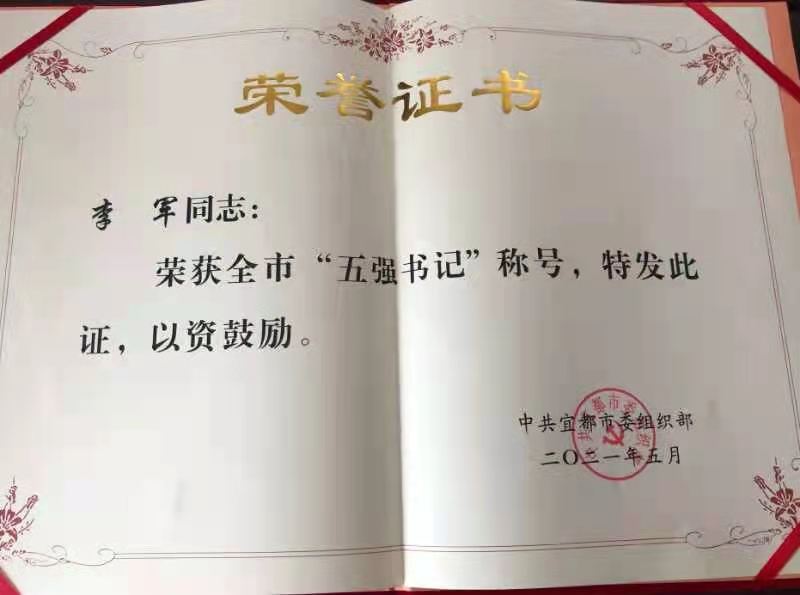 荣誉证书
李 军同志：
荣获全市“五强书记”称号，特发此
证，以资鼓励。
中共宜都市委组织部
二〇二一年五月